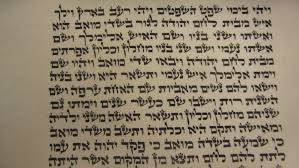 ויהי בימי שפט השפטים ויהי רעב בארץ וילך
איש מבית לחם יהודה לגור בשדי מואב הוא
ואשתו ושני בניו ושם האיש אלימלך ושם
אשתו נעמי ושם שני בניו מחלון וכליון אפרתים
מבית לחם יהודה ויבאו שדי מואב ויהיו שם
וימת אלימלך איש נעמי ותשאר היא ושני בניה
וישאו להם נשים מאביות שם האחת ערפה ושם
השנית רות וישבו שם כעשר שנים וימתו גם
שניהם מחלון וכליון ותשאר האשה משני ילדיה
ומאישה ותקם היא וכלתיה ותשב משדי מואב
כי שמעה בשדה מואב כי פקד יהוה את עמו
לתת להם לחם ותצא מן המקום אשר היתה